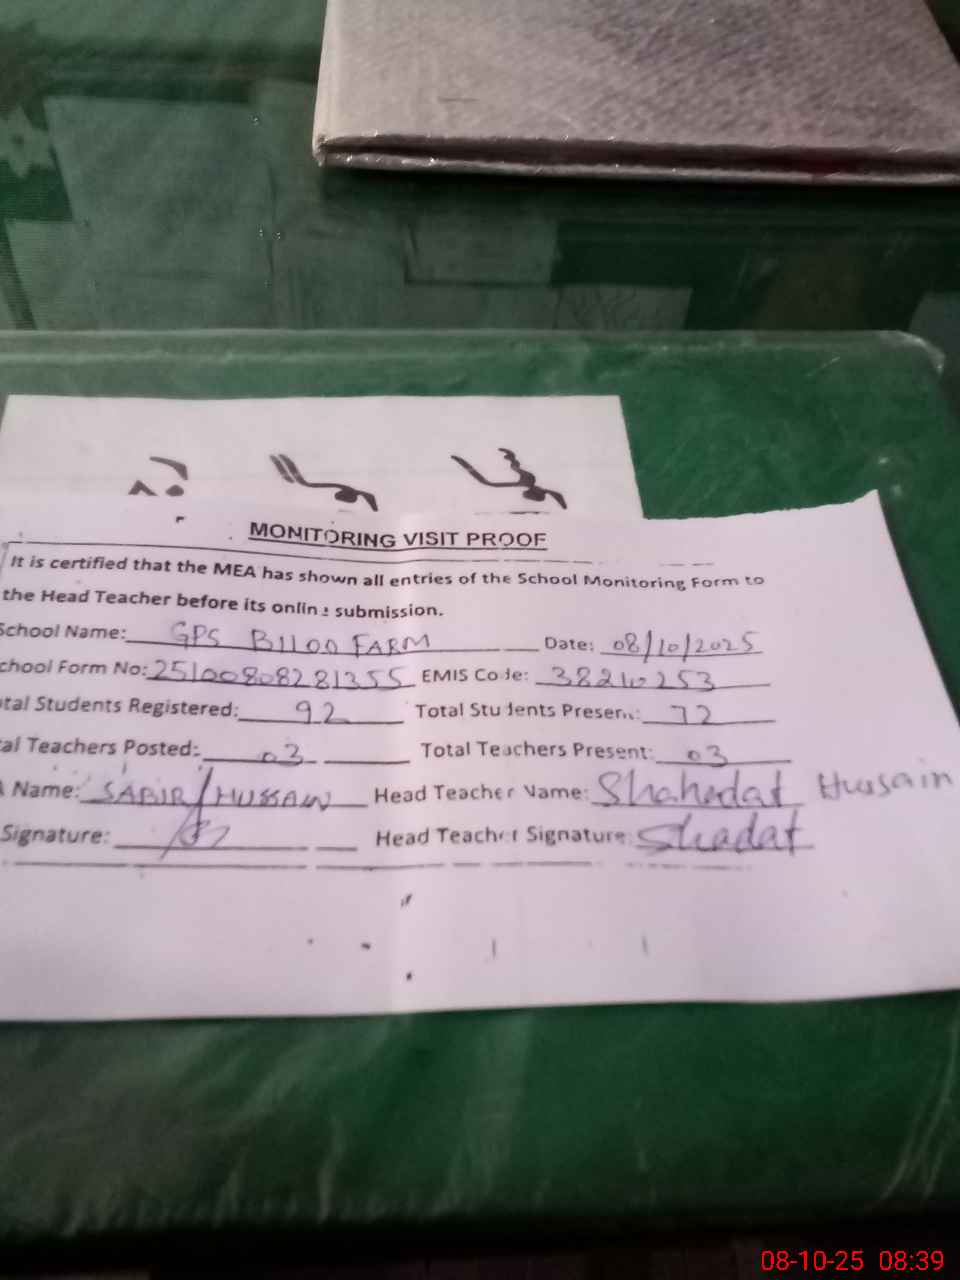 MONITORING VISIT PROOF
It is certified that the MEA has shown all entries of the School Monitoring Form to
the Head Teacher before its online submission.
School Name: GPS B1100 FARM Date: 08/10/2025
chool Form No: 25100808281355 EMIS Code: 38210253
tal Students Registered: 92 Total Students Present: 72
al Teachers Posted: 03 Total Teachers Present: 03
A Name: SABIR HUSSAIN Head Teacher Name: Shahadat Hussain
Signature: Head Teacher Signature: Shadat
08-10-25 08:39